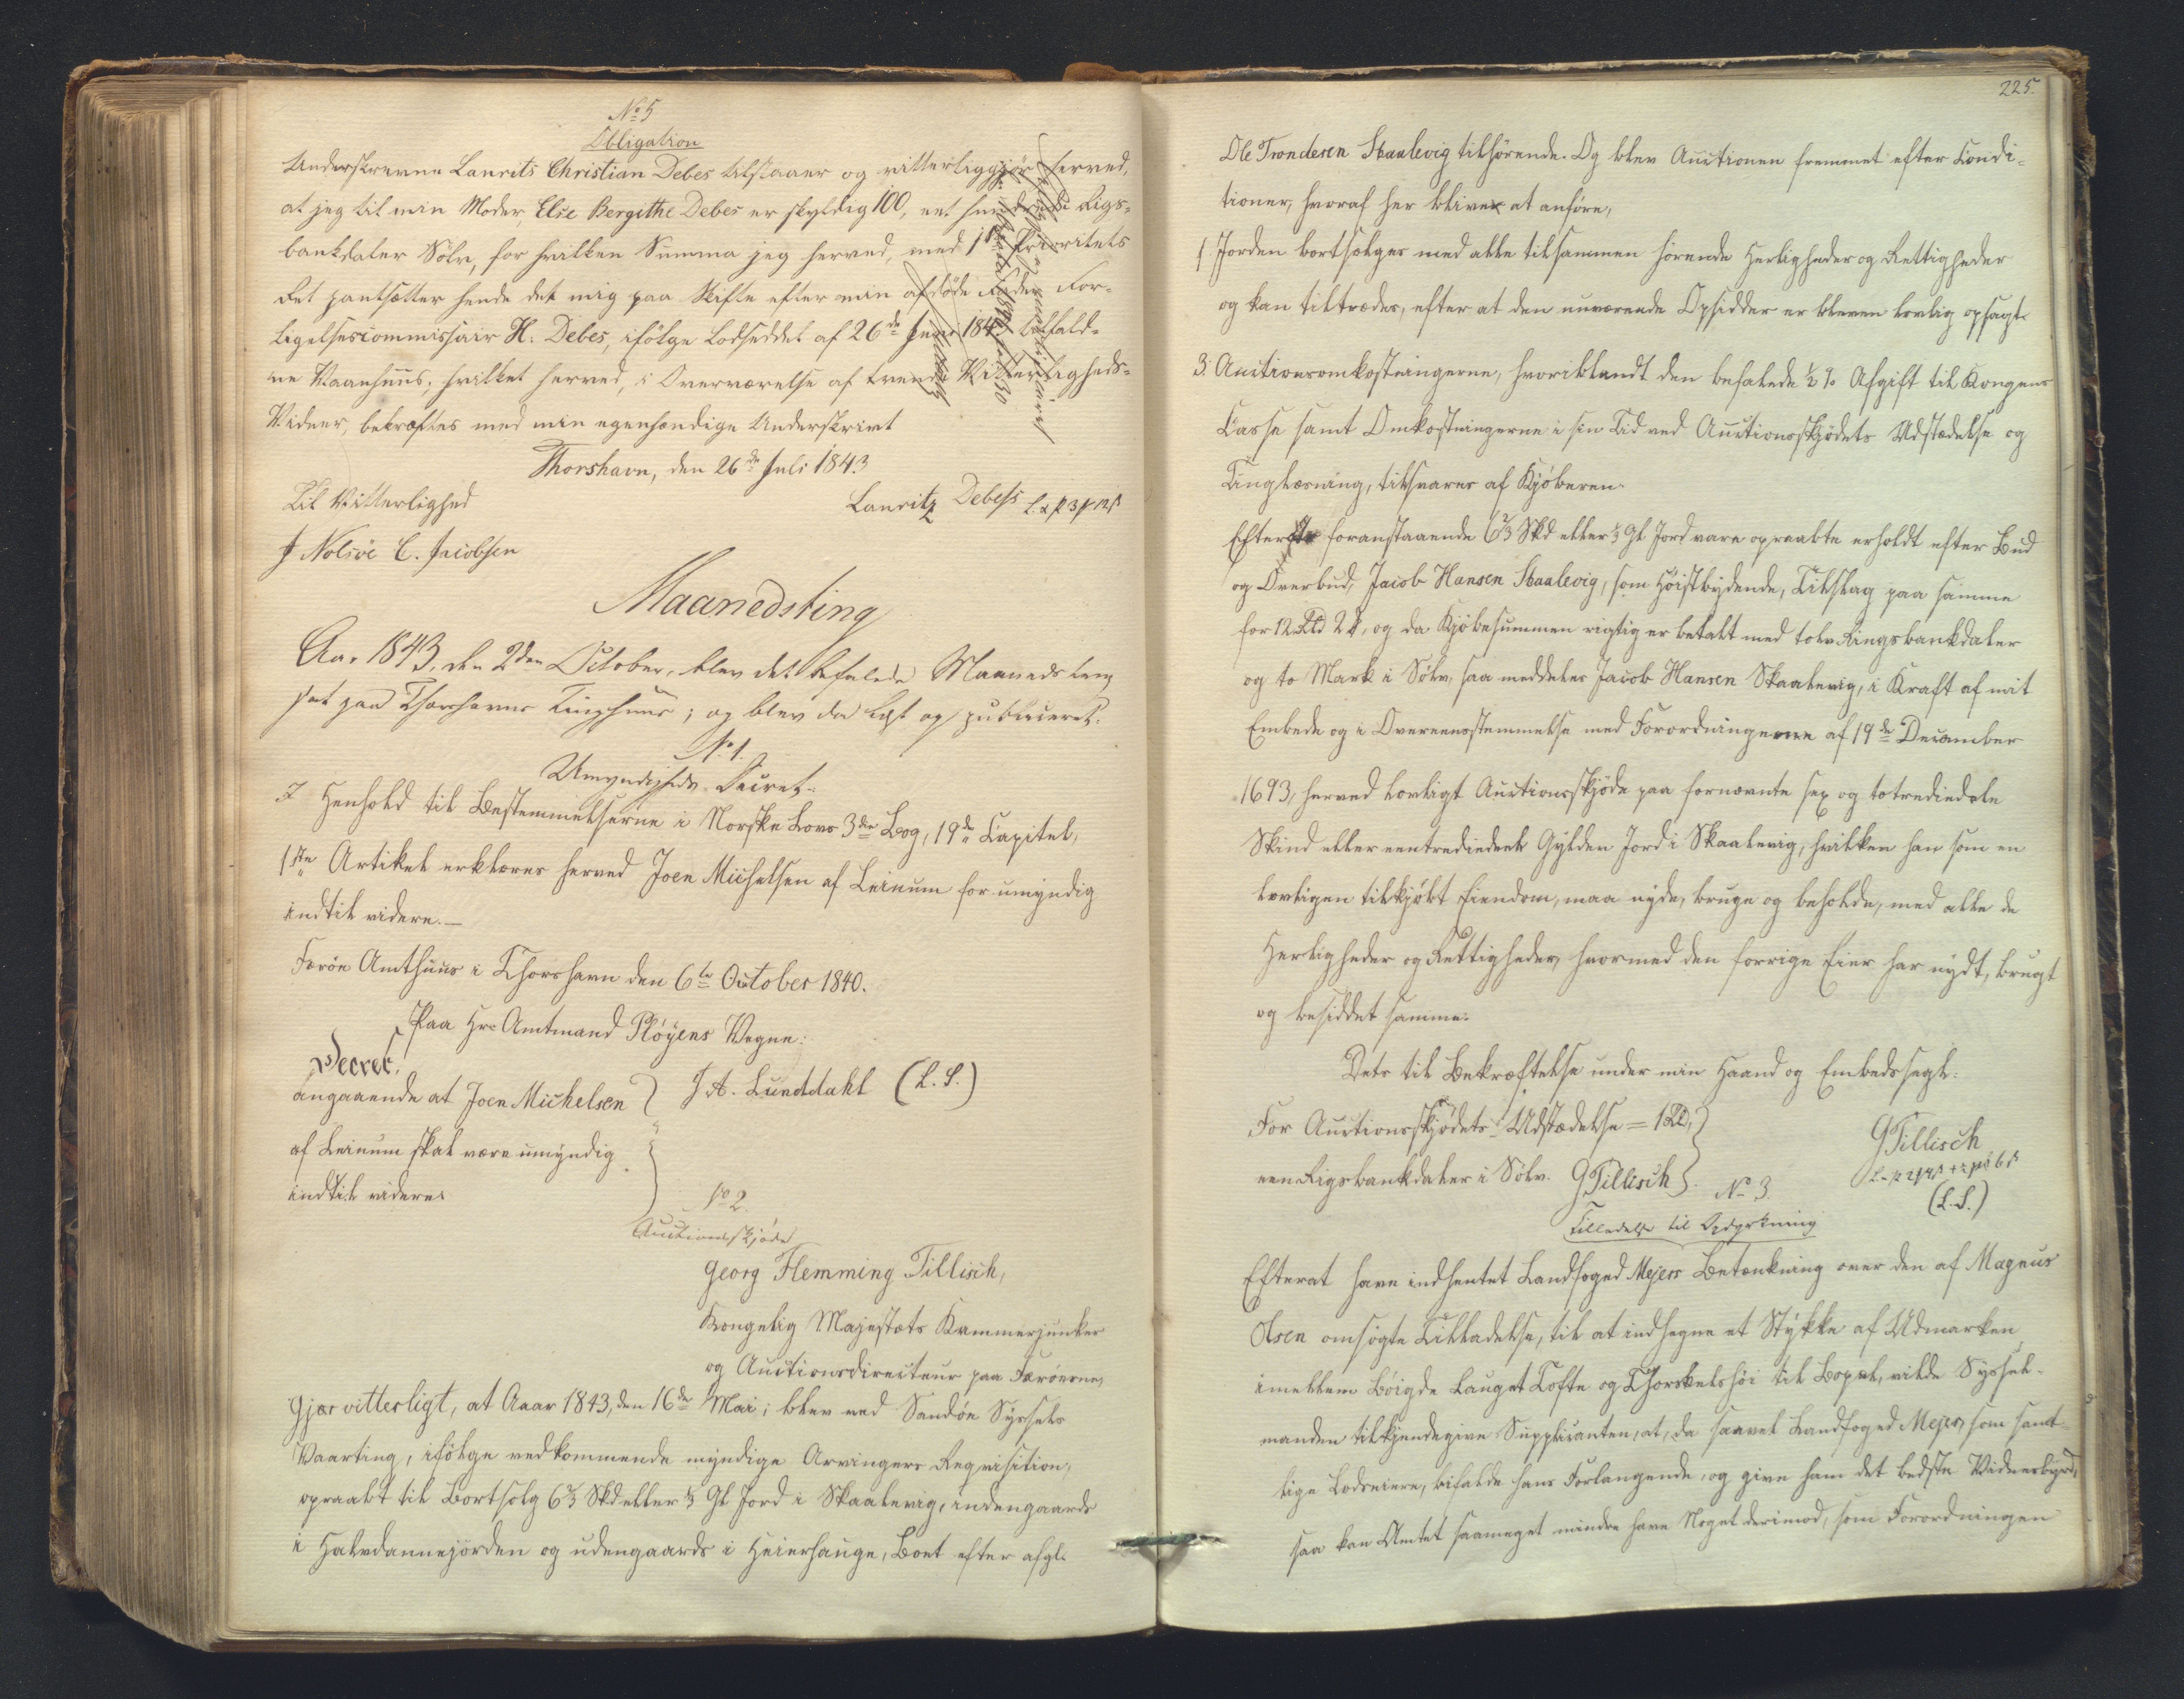 No 5
Obligation
Underskrevne Laurits Christian Debes tilstaaer og vitterliggjør herved,
at jeg til min Moder Else Bergithe Debes er skyldig 100, eet hundrede Rigs-
bankdaler Sölv, for hvilken Summa jeg herved, med 1ste Prioritets
Ret pantsætter hende det mig paa Skifte efter min afdöde Fader For-
ligelsescommissair H. Debes, ifölge Lodseddel af 26de Juni 184 tilfald-
ne Vaanhuus; hvilket herved, i Overværelse af tvende Vitterligheds-
Vidner, bekræftes med min egenhændige Underskrivt
Thorshavn, den 26de Juli 1843
Til Vitterlighed
Lauritz Debess
J Nolsöe C. Jacobsen
Maanedsting
Aar 1843, den 2den October, blev det befalede Maanedsting
sat paa Thorshavns Tinghuus; og blev da læst og publiceret.
No 1.
Umyndigheds-Decret.
I Henhold til Bestemmelserne i Norske Lovs 3die Bog, 19de Capitel,
1ste Artikel erklæres herved Joen Michelsen af Leinum for umyndig
indtil videre.—
Færöe Amthuus i Thorshavn den 6te October 1840.
Paa Hr. Amtmand Plöyens Vegne:
Decret,
angaaende at Joen Michelsen
J A. Lunddahl (L. S.)
af Leinum skal være umyndig
indtil videre.
No 2.
Auctionsskjöde
Georg Flemming Tillisch,
Kongelig Majestæts Kammerjunker
og Auctionsdirecteur paa Færöerne,
Gjør vitterligt, at Aaar 1843, den 16de Mai; blev ved Sandöe Syssels
Vaarting, ifölge vedkommende myndige Arvingers Reqvisition,
opraabt til Bortsalg 6 2/3 Skd eller 1/3 Gl Jord i Skaalevig, indengaards
i Halvdannejörden og udengaards i Heierhauge, Boet efter afgl.
225.
Ole Trondesen Skaalevig tilhørende. Og blev Auctionen fremmet efter Condi-
tioner, hvoraf her bliver at anføre,
1 Jorden bortsælges med alle tilsammen hørende Herligheder og Rettigheder
og kan tiltrædes, efter at den nuværende Opsidder er bleven lovlig opsagt.
3. Auctionsomkostningerne, hvoriblandt den befalede 1/2 % Afgift til Kongens
Casse samt Omkostningerne i sin Tid ved Auctionsskjödets Udstædelse og
Tinglæsning, tilsvares af Kjöberen.
Efterat foranstaaende 6 2/3 Skd eller 1/3 Gl Jord vare opraabte erholdt efter Bud
og Overbud, Jacob Hansen Skaalevig, som Höistbydende, Tilslag paa samme
for 12 Rbd 2 #, og da Kjöbesummen rigtig er betalt med tolv Rigsbankdaler
og to Mark i Sölv, saa meddeles Jacob Hansen Skaalevig, i Kraft af mit
Embede og i Overeensstemmelse med Forordningerne af 19de December
1693, herved lovligt Auctionsskjöde paa fornævnte sex og totrediedele
Skind eller eentrediedeel Gylden Jord i Skaalevig, hvilken han som en
lovligen tilkjöbt Eiendom, maa nyde, bruge og beholde, med alle de
Herligheder og Rettigheder, hvormed den forrige Eier har nydt, brugt
og besiddet samme.
Dets til Bekræftelse under min Haand og Embedssegl.
For Auctionsskjödets Udstædelse = 1 Rbd,
GTillisch
een Rigsbankdaler i Sölv. GTillisch.
(L.S.)
No 3
Tilladelse til Opdyrkning
Efterat have indhentet Landfoged Mejers Betænkning over den af Magnus
Olsen omsögte Tilladelse, til at indhegne et Stykke af Udmarken
imellem Böigde Lauget Tofte og Thorskelshöi til Bopæl, vilde Syssel-
manden tilkjendegive Supplicanten, at, da saavel Landfoged Mejer, som samt-
lige Lodseiere, bifalde hans Forlangende, og give ham det bedste Vidnesbyrd,
saa kan Amtet saameget mindre have Noget derimod, som Forordningen